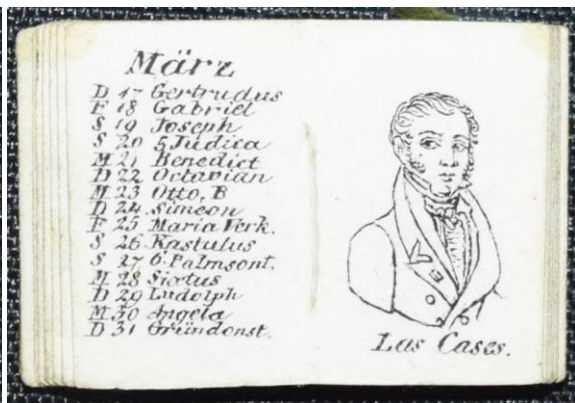 März
D 17 Gertrudus
F 18 Gabriel
S 19 Joseph
S 20 5 Judica
M 21 Benedict
D 22 Octavian
M 23 Otto, B
D 24 Simeon
F 25 Maria Verk.
S 26 Kastulus
S 27 6 Palmsont.
M 28 Sixtus
D 29 Ludolph
M 30 Angela
D 31 Gründonst.
Las Cases.